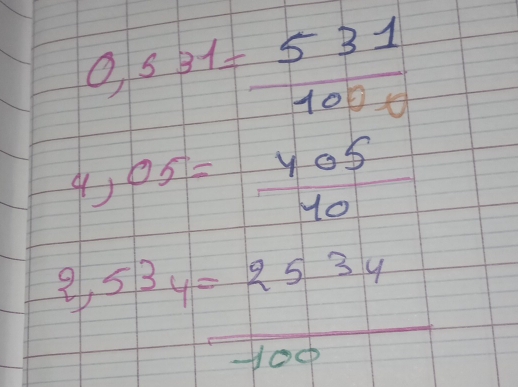 0,531= 531
1000
4,05= 405
10
2,534= 2534
100